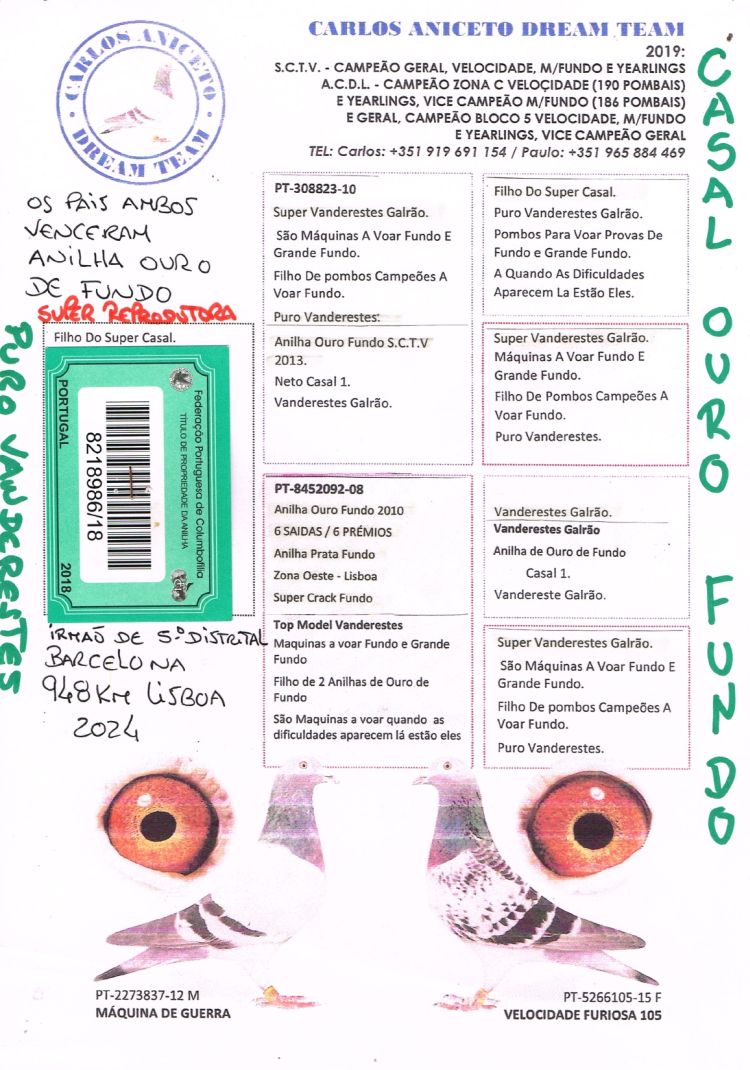 CARLOS ANICETO
DREAM TEAM
CARLOS ANICETO DREAM TEAM
2019:
S.C.T.V. - CAMPEÃO GERAL, VELOCIDADE, M/FUNDO E YEARLINGS
A.C.D.L. - CAMPEÃO ZONA C VELOÇIDADE (190 POMBAIS)
E YEARLINGS, VICE CAMPEÃO M/FUNDO (186 POMBAIS)
E GERAL, CAMPEÃO BLOCO 5 VELOCIDADE, M/FUNDO
E YEARLINGS, VICE CAMPEÃO GERAL
TEL: Carlos: +351 919 691 154 / Paulo: +351 965 884 469
CASAL OURO FUNDO
OS PAIS AMBOS
VENCERAM
ANILHA OURO
DE FUNDO
SUPER REPRODUTORA
PURO VANDERESTES
Filho Do Super Casal.
Federação Portuguesa de Columbofilia
TÍTULO DE PROPRIEDADE DA ANILHA
8218986/18
PORTUGAL
2018
IRMAÕ DE 5.º DISTRITAL
BARCELONA
948Km LISBOA
2024
PT-308823-10
Super Vanderestes Galrão.
São Máquinas A Voar Fundo E
Grande Fundo.
Filho De pombos Campeões A
Voar Fundo.
Puro Vanderestes.
Anilha Ouro Fundo S.C.T.V
2013.
Neto Casal 1.
Vanderestes Galrão.
Filho Do Super Casal.
Puro Vanderestes Galrão.
Pombos Para Voar Provas De
Fundo e Grande Fundo.
A Quando As Dificuldades
Aparecem La Estão Eles.
Super Vanderestes Galrão.
Máquinas A Voar Fundo E
Grande Fundo.
Filho De Pombos Campeões A
Voar Fundo.
Puro Vanderestes.
PT-8452092-08
Anilha Ouro Fundo 2010
6 SAIDAS / 6 PRÉMIOS
Anilha Prata Fundo
Zona Oeste - Lisboa
Super Crack Fundo
Top Model Vanderestes
Maquinas a voar Fundo e Grande
Fundo
Filho de 2 Anilhas de Ouro de
Fundo
São Maquinas a voar quando as
dificuldades aparecem lá estão eles
Vanderestes Galrão.
Vanderestes Galrão
Anilha de Ouro de Fundo
Casal 1.
Vandereste Galrão.
Super Vanderestes Galrão.
São Máquinas A Voar Fundo E
Grande Fundo.
Filho De pombos Campeões A
Voar Fundo.
Puro Vanderestes.
PT-2273837-12 M
MÁQUINA DE GUERRA
PT-5266105-15 F
VELOCIDADE FURIOSA 105